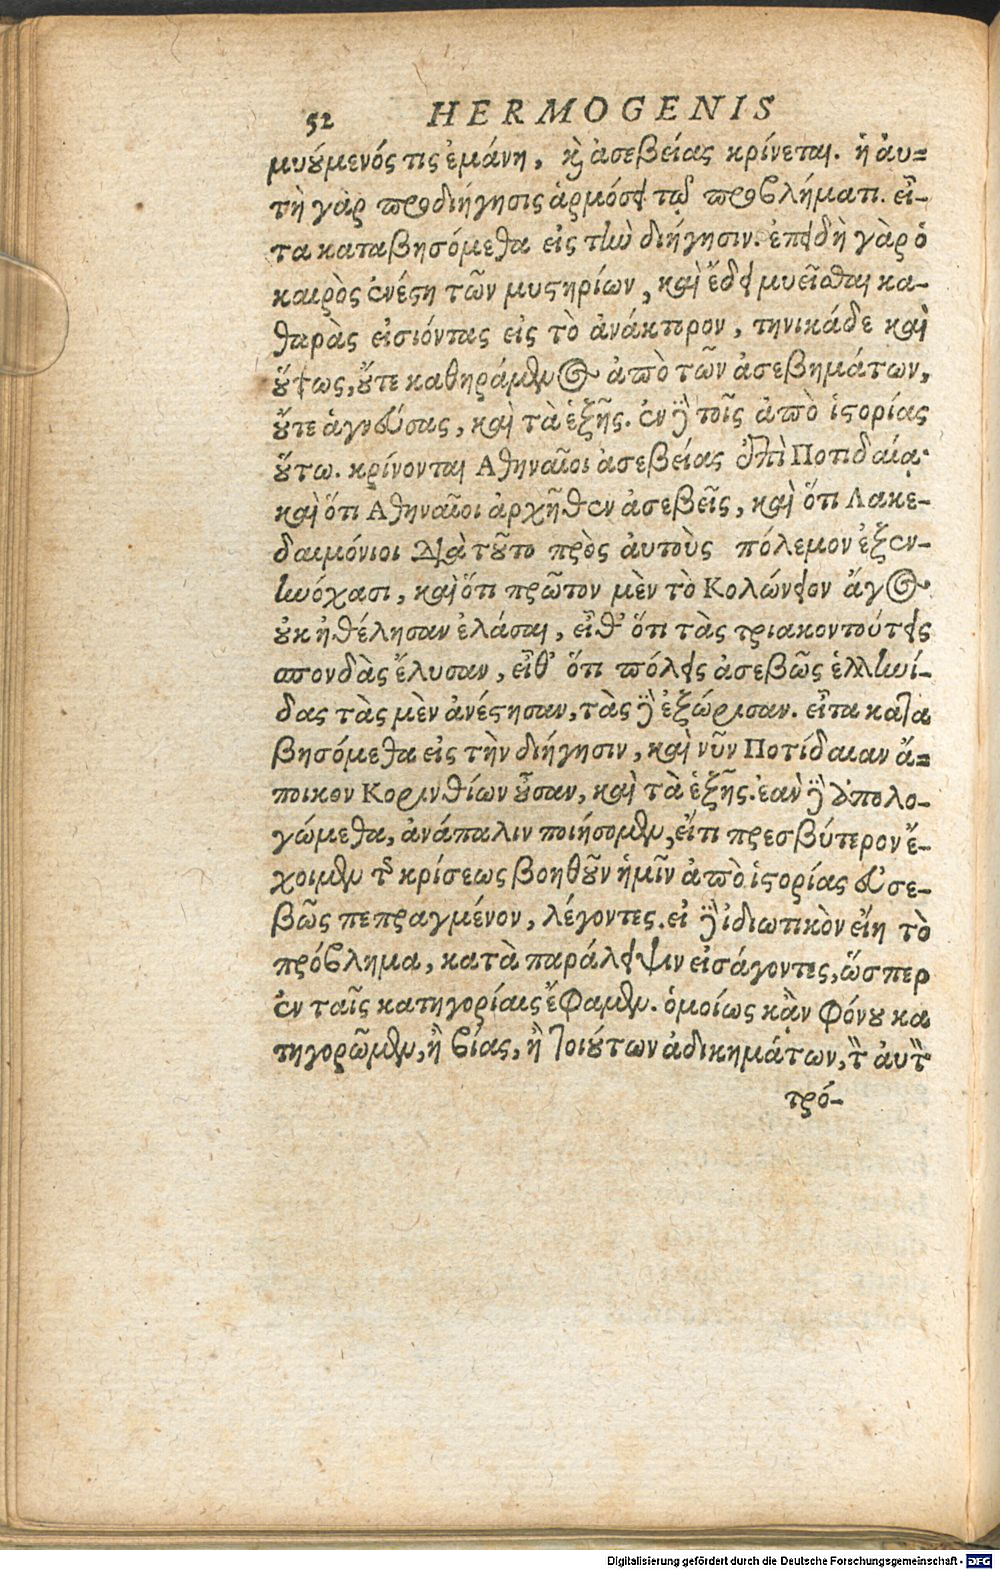 52 HERMOGENIS
μυούμενός τις ἐμάνη, καὶ ἀσεβείας κρίνεται. ἡ αὐ=
τὴ γὰρ προδιήγησις ἁρμόσει τῷ προβλήματι. εἶ-
τα καταβησόμεθα εἰς τὴν διήγησιν. ἐπειδὴ γὰρ ὁ
καιρὸς ἐνέστη τῶν μυστηρίων, καὶ ἔδει μυεῖσθαι κα-
θαρὰς εἰσιόντας εἰς τὸ ἀνάκτορον, τηνικάδε καὶ
οὕτως, οὔτε καθηράμενος ἀπὸ τῶν ἀσεβημάτων,
οὔτε ἁγνεύσας, καὶ τὰ ἑξῆς. ἐν δὲ τοῖς ἀπὸ ἱστορίας
οὕτω. κρίνονται Ἀθηναῖοι ἀσεβείας ἐπὶ Ποτιδαίᾳ.
καὶ ὅτι Ἀθηναῖοι ἀρχῆθεν ἀσεβεῖς, καὶ ὅτι Λακε-
δαιμόνιοι διὰ τοῦτο πρὸς αὐτοὺς πόλεμον ἐξεν-
ηνόχασι, καὶ ὅτι πρῶτον μὲν τὸ Κολώνειον ἄγος
οὐκ ἠθέλησαν ἐλάσαι, εἶθ’ ὅτι τὰς τριακοντούτεις
σπονδὰς ἔλυσαν, εἶθ’ ὅτι πόλεις ἀσεβῶς ἑλληνί-
δας τὰς μὲν ἀνέστησαν, τὰς δὲ ἐξώρισαν. εἶτα κατα
βησόμεθα εἰς τὴν διήγησιν, καὶ νῦν Ποτίδαιαν ἄ=
ποικον Κορινθίων οὖσαν, καὶ τὰ ἑξῆς. ἐὰν δὲ ἀπολο-
γώμεθα, ἀνάπαλιν ποιήσομεν, εἴ τι πρεσβύτερον ἔ-
χοιμεν τῆς κρίσεως βοηθοῦν ἡμῖν ἀπὸ ἱστορίας εὐσε-
βῶς πεπραγμένον, λέγοντες. εἰ δὲ ἰδιωτικὸν εἴη τὸ
πρόβλημα, κατὰ παράλειψιν εἰσάγοντες, ὥσπερ
ἐν ταῖς κατηγορίαις ἔφαμεν. ὁμοίως κἂν φόνου κα
τηγορῶμεν, ἢ βίας, ἢ τοιούτων ἀδικημάτων, τὸν αὐτὸν
τρό-
Digitalisierung gefördert durch die Deutsche Forschungsgemeinschaft - DFG